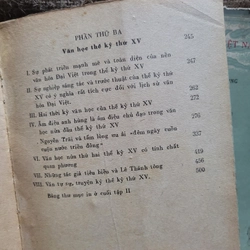 PHẦN THỨ BA
Văn học thế kỷ thứ XV
I. Sự phát triển mạnh mẽ và toàn diện của nền văn hóa Đại Việt trong thế kỷ thứ XV. 245
II. Sự nghiệp sáng tác và trước thuật của thế kỷ thứ XV có ý nghĩa rất tích cực đối với lịch sử văn hóa Đại Việt. 267
III. Hai thời kỳ văn học của thế kỷ thứ XV. 272
IV. Âm điệu anh hùng là âm điệu chủ đạo trong văn học nửa đầu thế kỷ thứ XV. 276
Nguyễn Trãi và tấm lòng ưu ái «đêm ngày cuồn cuộn nước triều đông»
VI. Văn học nửa thứ hai thế kỷ XV có tính chất quan phương 409
VII. Những tác giả tiêu biểu và Lê Thánh tông 456
VIII. Văn tự sự, truyện ký thế kỷ thứ XV. 500
Bảng thư mục in ở cuối tập II